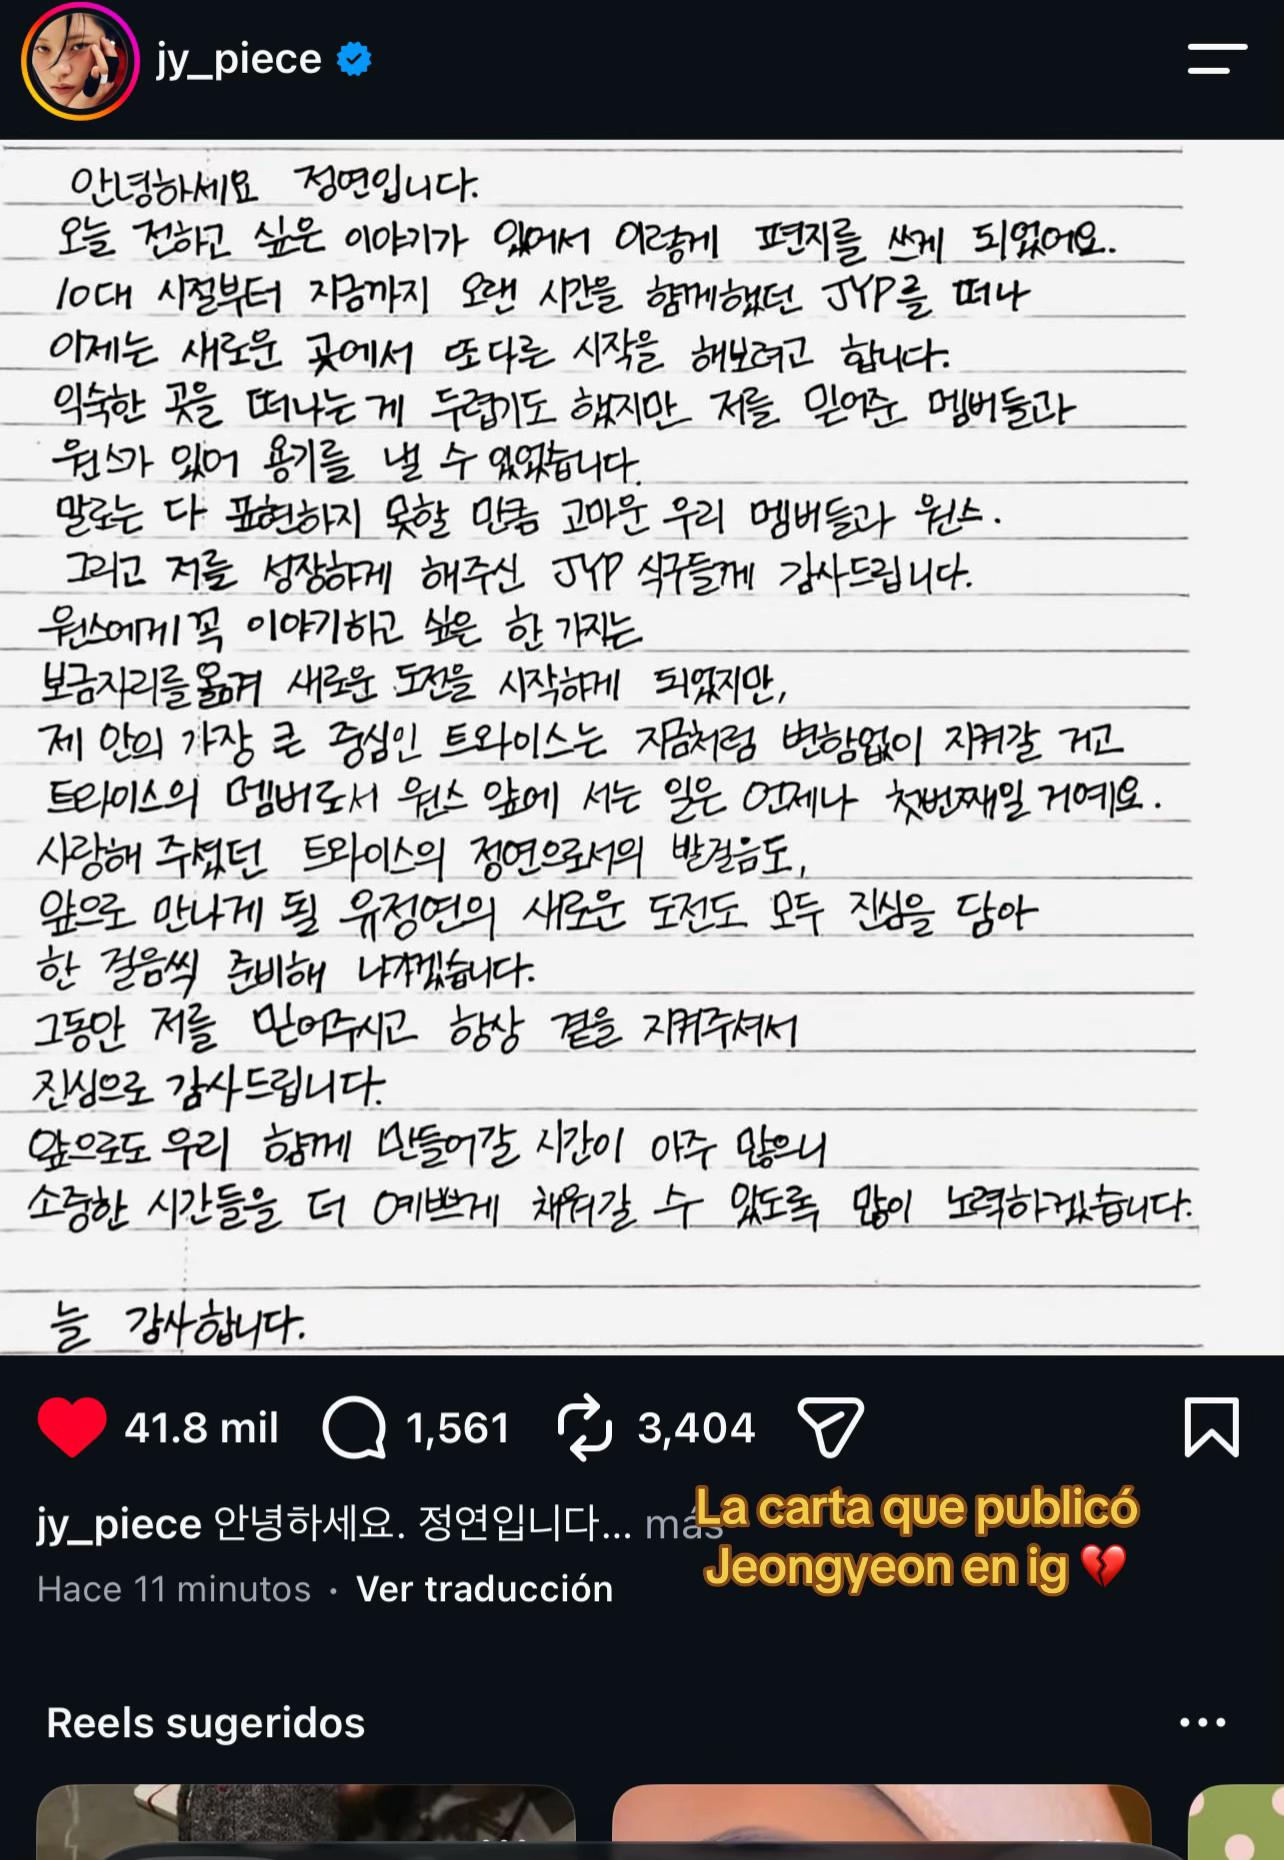 jy_piece
안녕하세요 정연입니다.
오늘 전하고 싶은 이야기가 있어서 이렇게 편지를 쓰게 되었어요.
10대 시절부터 지금까지 오랜 시간을 함께했던 JYP를 떠나
이제는 새로운 곳에서 또다른 시작을 해보려고 합니다.
익숙한 곳을 떠나는 게 두렵기도 했지만 저를 믿어준 멤버들과
원스가 있어 용기를 낼 수 있었습니다.
말로는 다 표현하지 못할 만큼 고마운 우리 멤버들과 원스.
그리고 저를 성장하게 해주신 JYP 식구들께 감사드립니다.
원스에게 꼭 이야기하고 싶은 한 가지는
보금자리를 옮겨 새로운 도전을 시작하게 되었지만,
제 안의 가장 큰 중심인 트와이스는 지금처럼 변함없이 지켜갈 거고
트와이스의 멤버로서 원스 앞에 서는 일은 언제나 첫번째일 거예요.
사랑해 주셨던 트와이스의 정연으로서의 발걸음도,
앞으로 만나게 될 유정연의 새로운 도전도 모두 진심을 담아
한 걸음씩 준비해 나가겠습니다.
그동안 저를 믿어주시고 항상 곁을 지켜주셔서
진심으로 감사드립니다.
앞으로도 우리 함께 만들어갈 시간이 아주 많으니
소중한 시간들을 더 예쁘게 채워갈 수 있도록 많이 노력하겠습니다.
늘 감사합니다.
41.8 mil 1,561 3,404
jy_piece 안녕하세요. 정연입니다... más
La carta que publicó
Jeongyeon en ig 💔
Hace 11 minutos · Ver traducción
Reels sugeridos